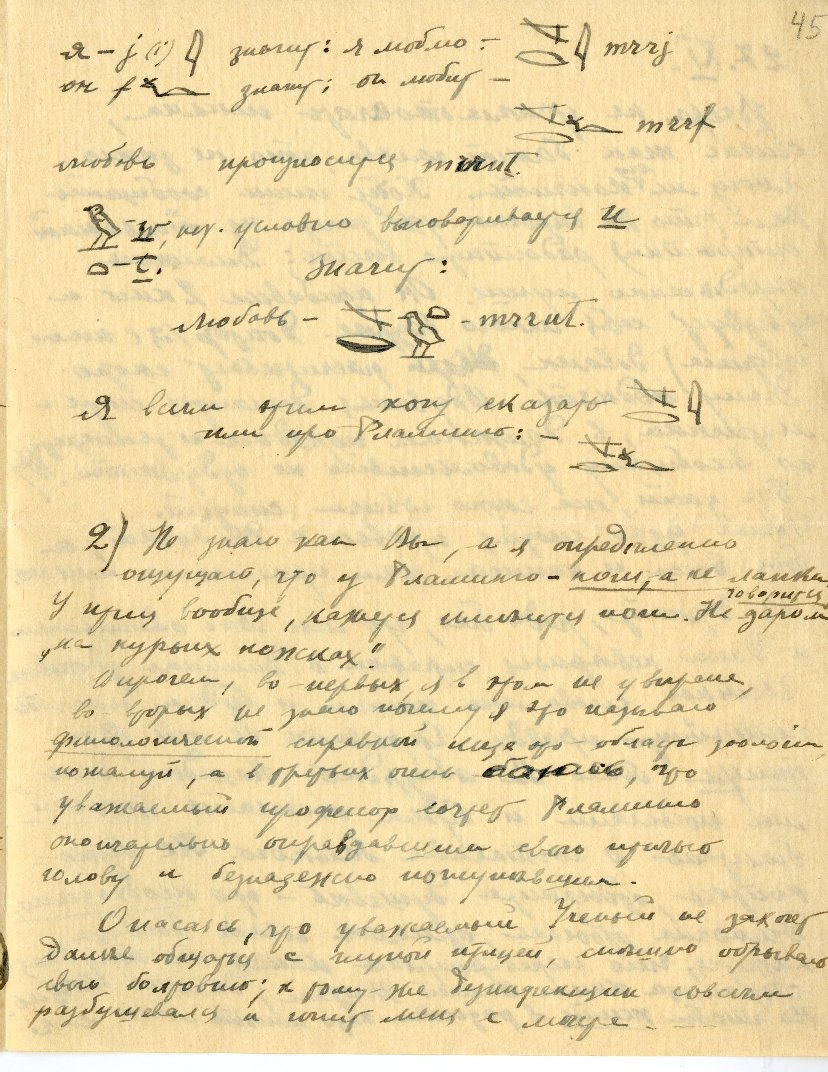 45
я – j (i) 𓇋 значит: я люблю – 𓌸𓂋𓇋 mrrj
он f 𓆑 значит: он любит –
𓌸𓂋𓆑 mrrf
любовь произносится mrrut.
𓅱 – w, но условно выговаривается u
𓏏 – t. Значит:
любовь – 𓌸𓂋𓅱𓏏 – mrrut.
Я всем этим хочу сказать 𓌸𓂋𓇋
или про Фламинго: – 𓌸𓂋𓆑
2) Не знаю как Вы, а я определенно
ощущаю, что у Фламинго – ноги, а не лапки
У птиц вообще, кажется имеются ноги. Не даром говорится
„на курьих ножках".
Впрочем, во-первых, я в этом не уверена,
во вторых не знаю почему я это называю
филологической справкой еще это область зоологии,
пожалуй, а в третьих очень боюсь, что
уважаемый профессор сочтет Фламинго
окончательно оправдавшим свою птичью
голову и безнадежно поглупевшим.
Опасаясь, что уважаемый Ученый не захочет
дальше общаться с глупой птицей, спешно обрываю
свою болтовню; к тому-же дезинфекции совсем
разбушевался и гонит меня с места –